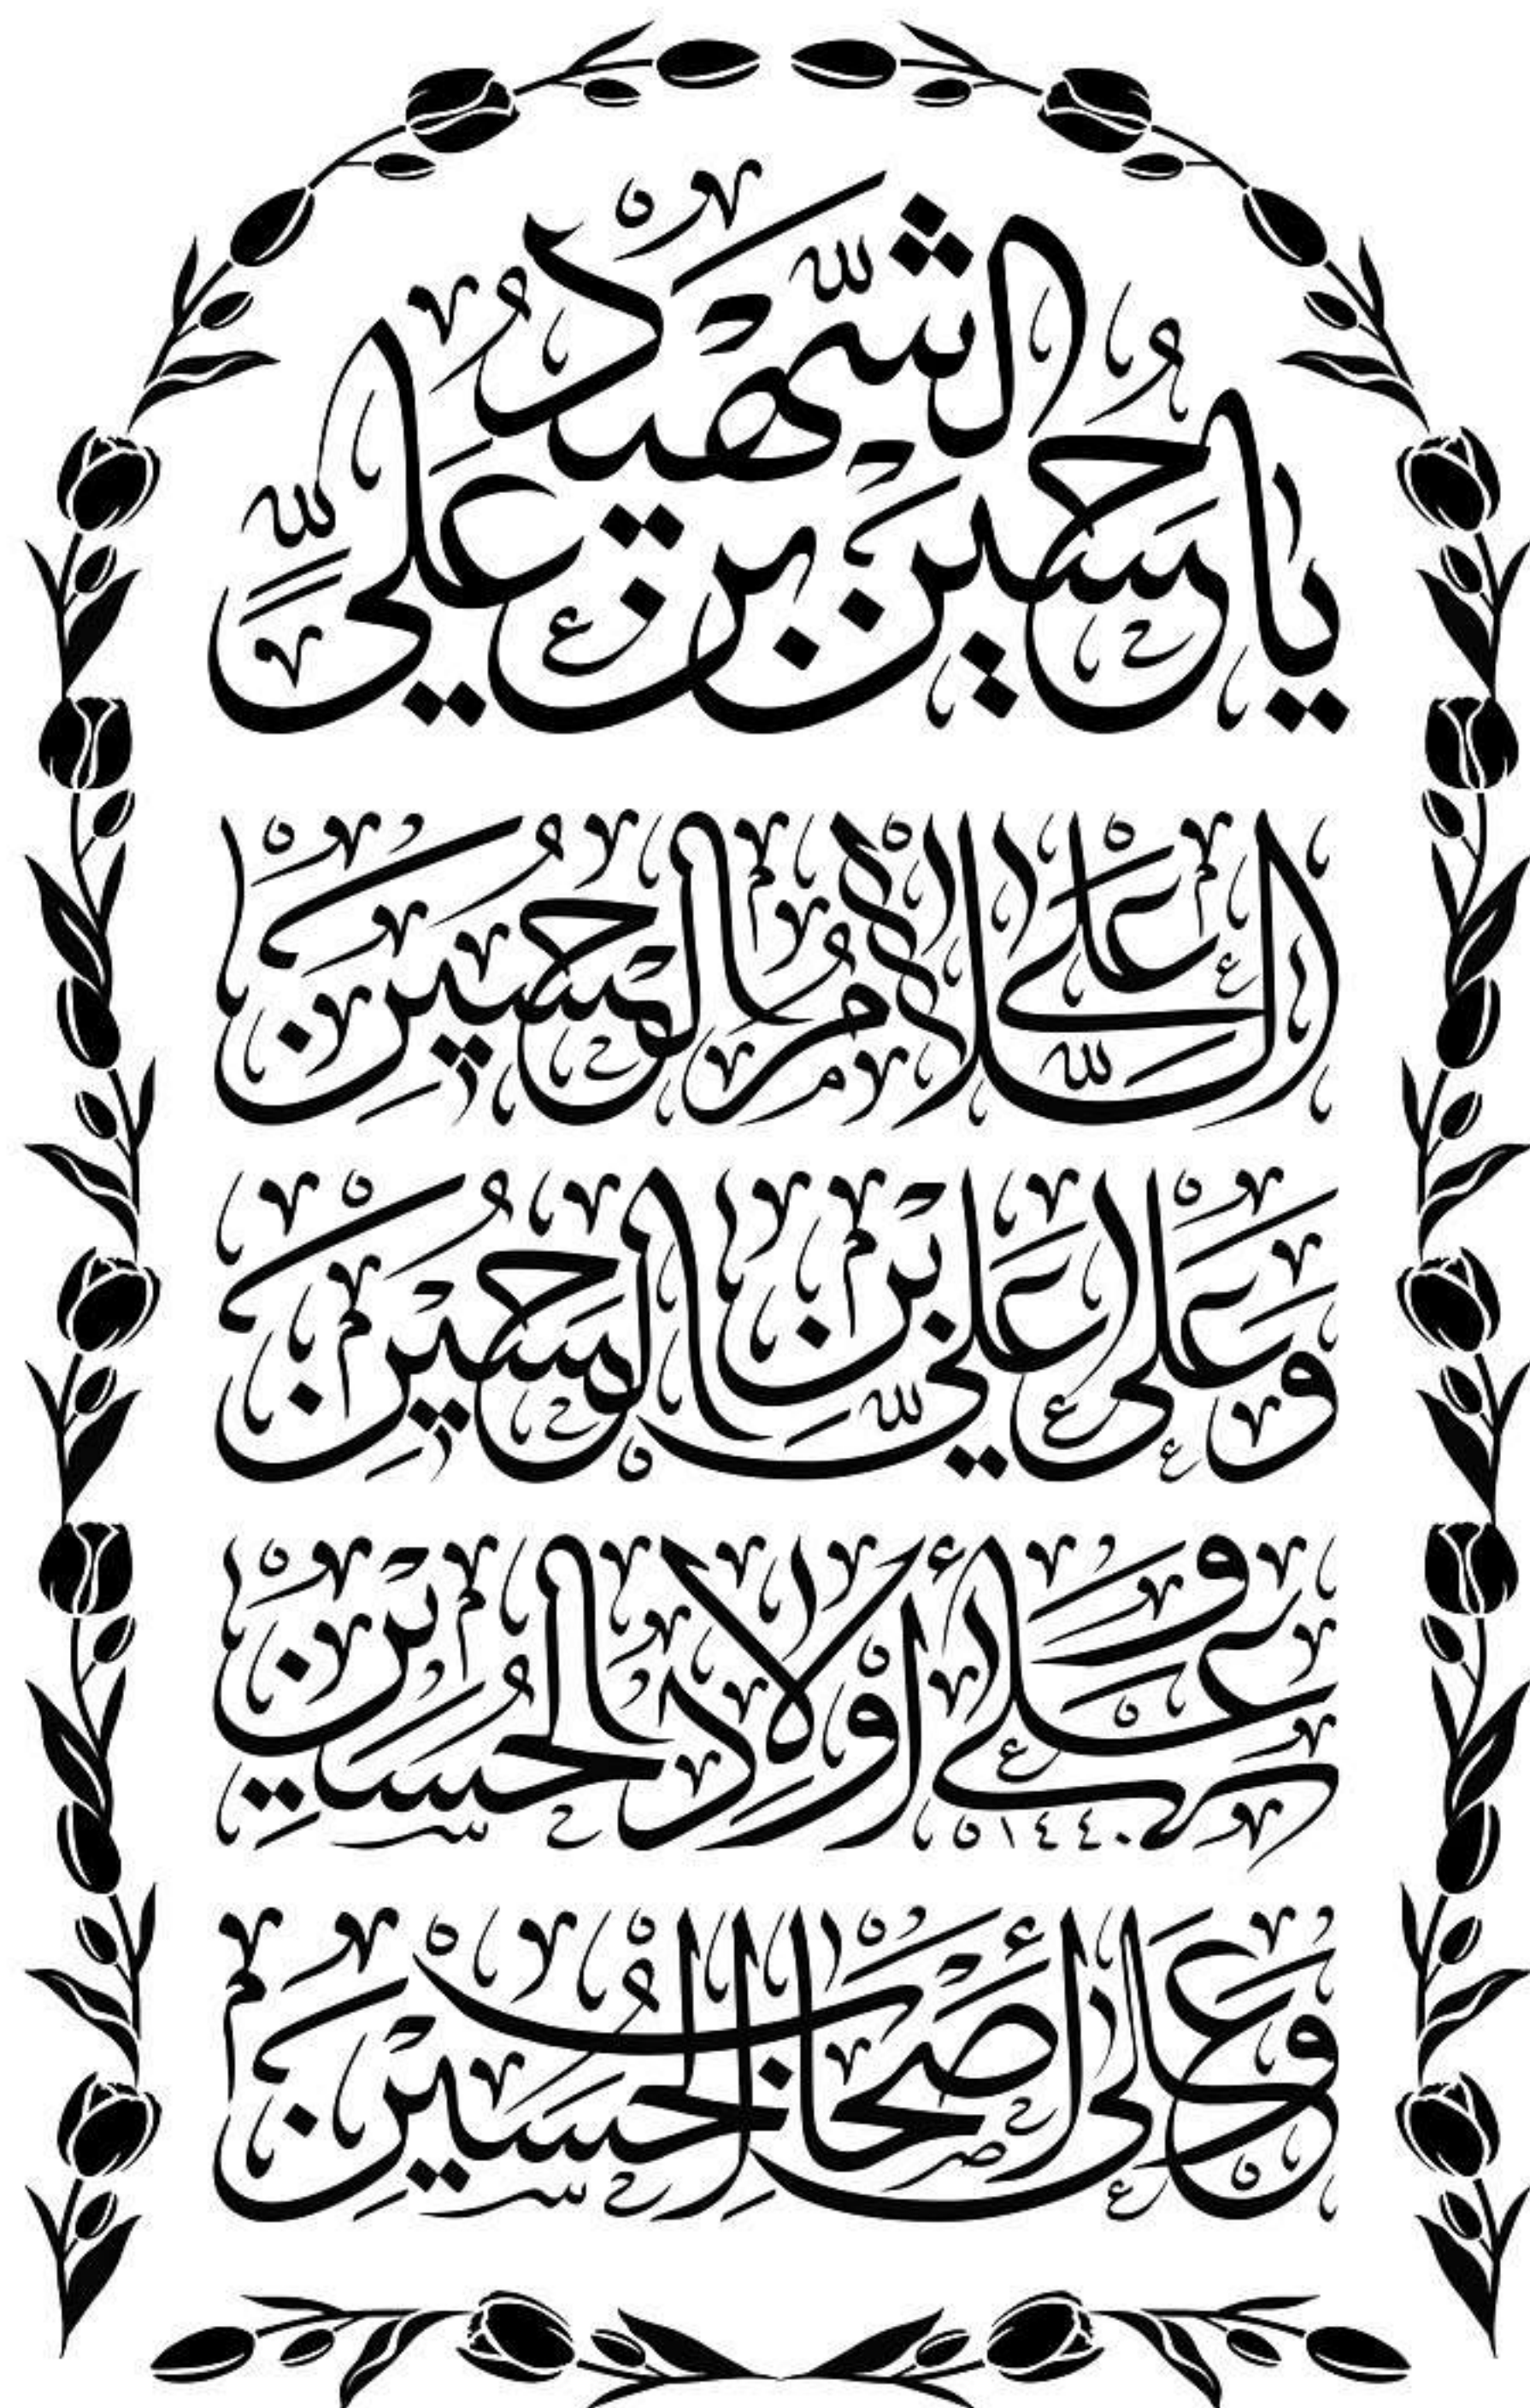 يا حُسَيْنَ بن عَلِيٍّ الشَّهيدُ
السَّلامُ عَلَى الْحُسَيْنِ
وَعَلى عَلِيِّ بْنِ الْحُسَيْنِ
وَعَلى أَوْلادِ الْحُسَيْنِ
١٤٤٠
وَعَلى أَصْحابِ الْحُسَيْنِ